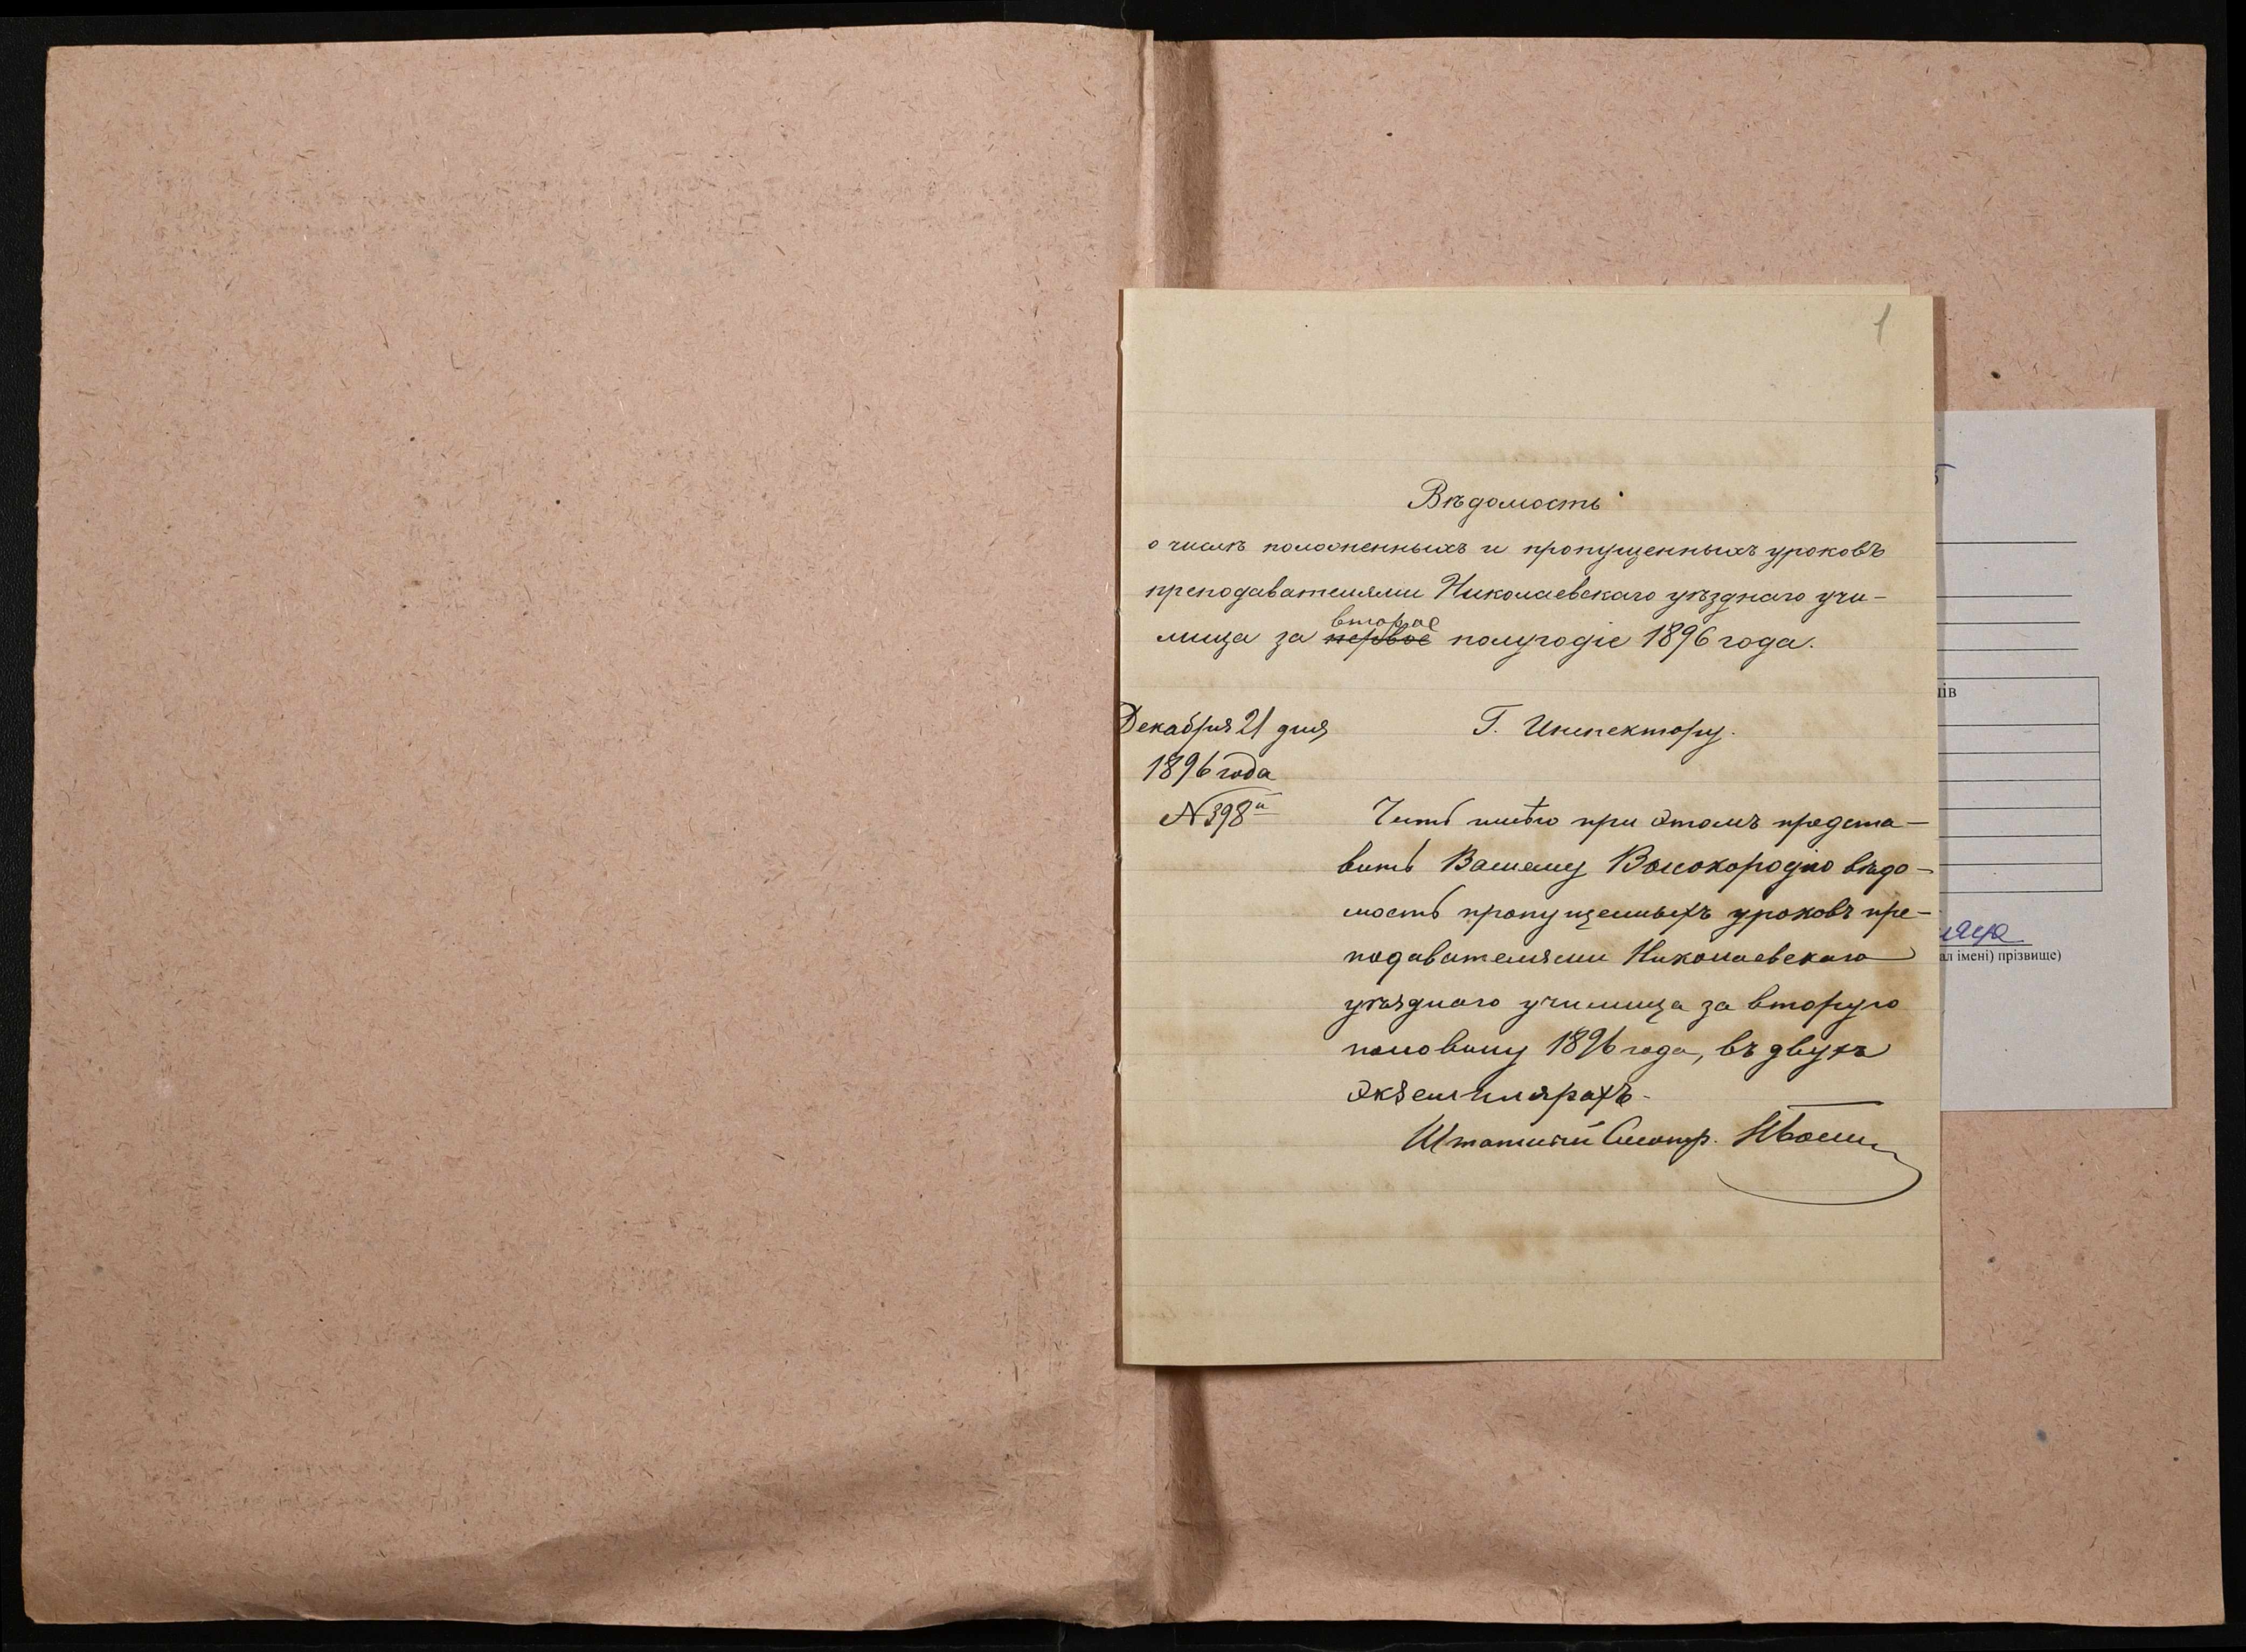 1
Вѣдомость
о числѣ положенныхъ и пропущенныхъ уроковъ
преподавателями Николаевскаго уѣзднаго учи-
второе
лища за первое полугодіе 1896 года.
Декабря 21 дня
1896 года
№ 398
Г. Инспектору.
Честь имѣю при этомъ предста-
вить Вашему Высокородію вѣдо-
мость пропущенныхъ уроковъ пре-
подавателями Николаевскаго
уѣзднаго училища за вторую
половину 1896 года, въ двухъ
экземплярахъ.
Штатный Смотр.
ів
ал імені) прізвище)